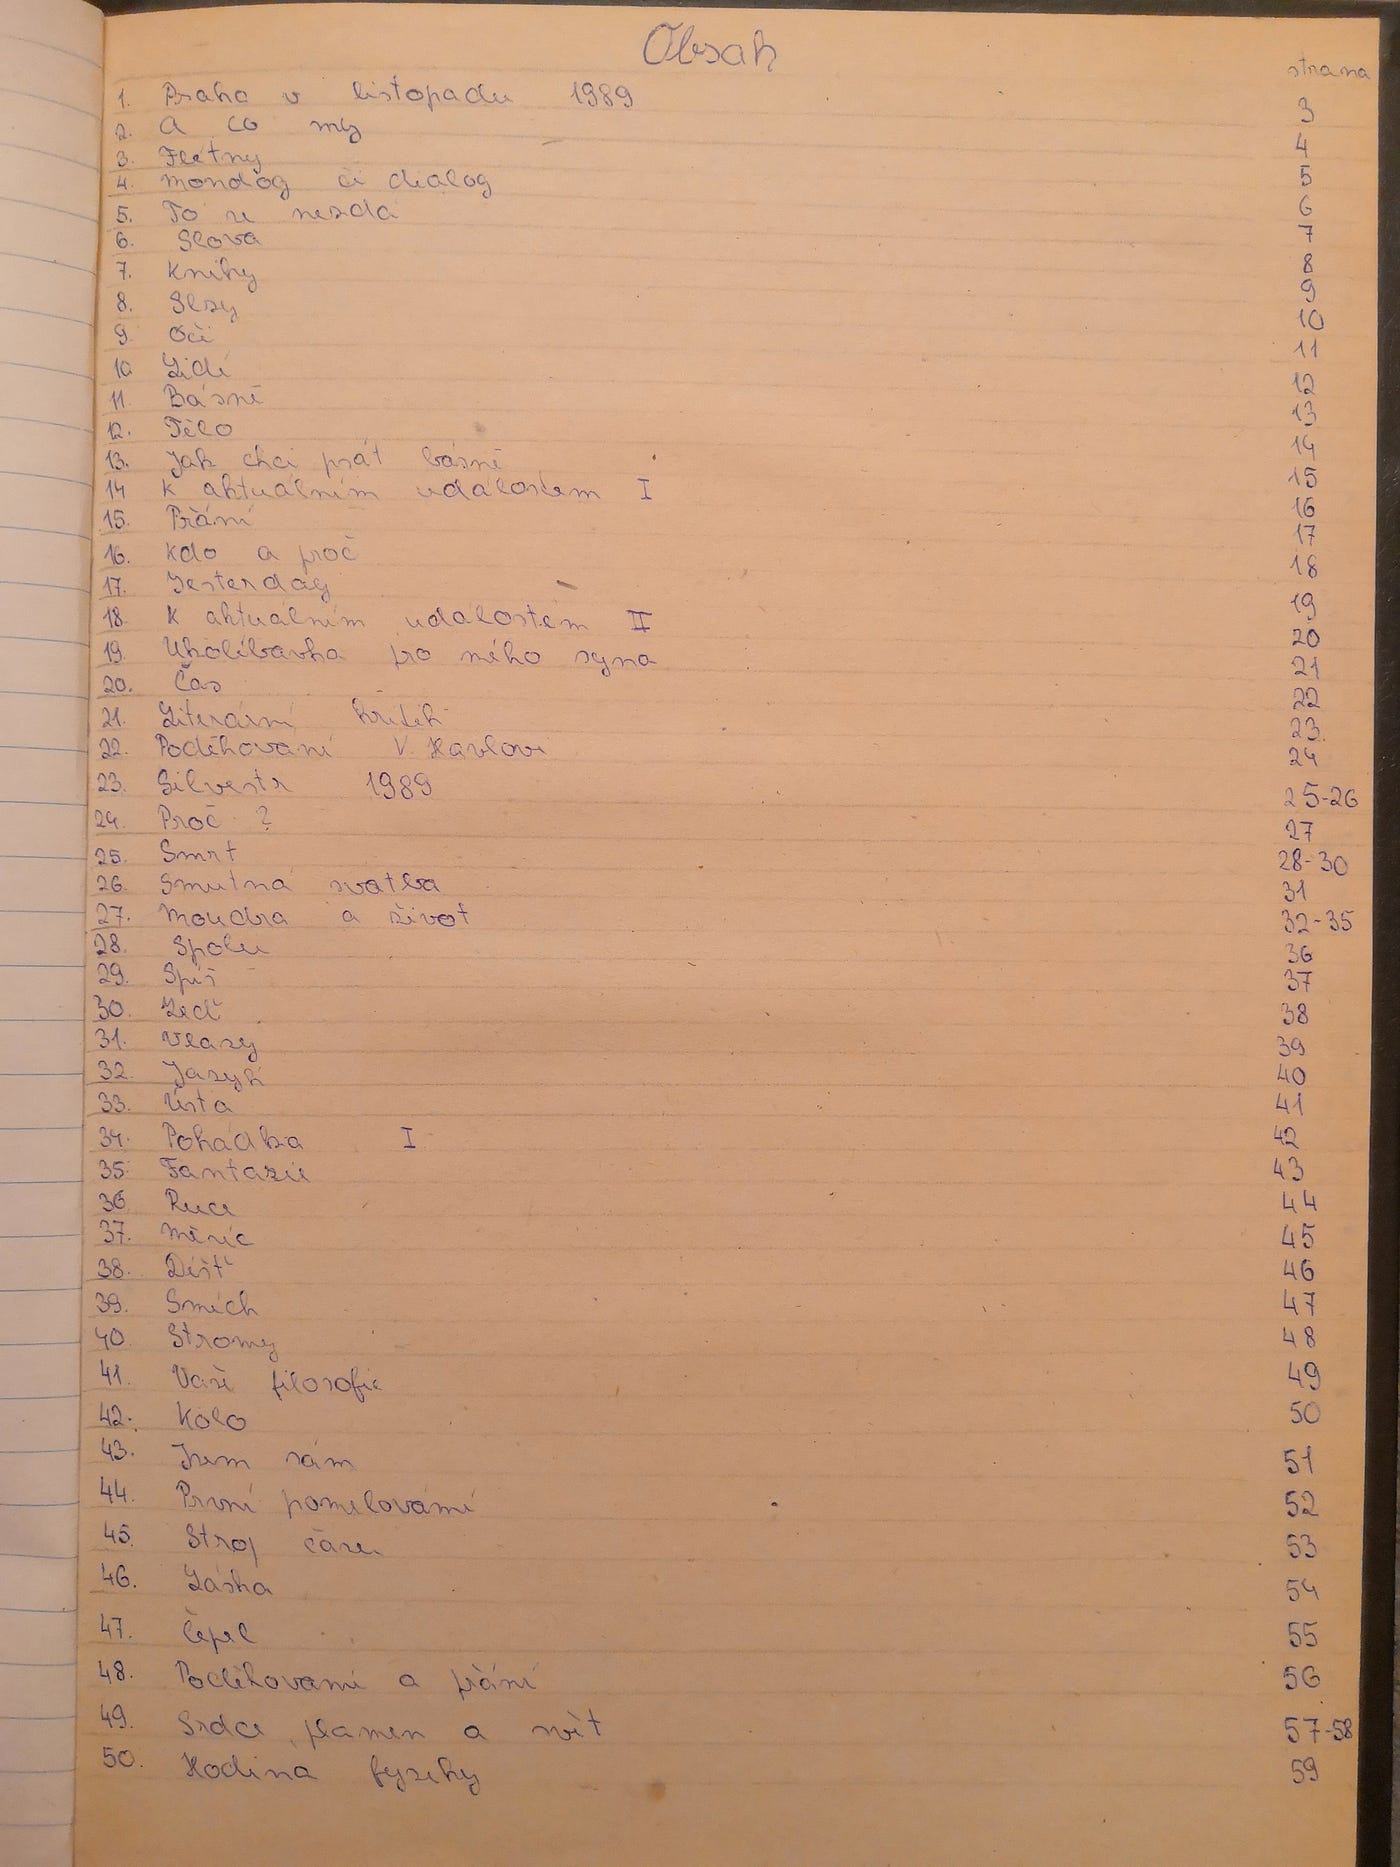 Obsah
strana
1. Praha v listopadu 1989 3
2. A co my 4
3. Flétny 5
4. Monolog či dialog 6
5. To se nezdá 7
6. Slova 8
7. Knihy 9
8. Slzy 10
9. Oči 11
10 Lidi 12
11. Básně 13
12. Tělo 14
13. Jak chci psát básně 15
14 K aktuálním událostem I 16
15. Přání 17
16. Kdo a proč 18
17. Yesterday 19
18. K aktuálním událostem II 20
19. Ukolíbavka pro mého syna 21
20. Čas 22
21. Literární kritik 23
22. Poděkování V. Havlovi 24
23. Silvestr 1989 25-26
24. Proč ? 27
25. Smrt 28-30
26. Smutná svatba 31
27. Moudra a život 32-35
28. Spolu 36
29. Spíš 37
30. Zeď 38
31. Vlasy 39
32. Jazyk 40
33. Ústa 41
34. Pohádka I 42
35. Fantazie 43
36 Ruce 44
37. Měsíc 45
38. Déšť 46
39. Smích 47
40. Stromy 48
41. Vaše filosofie 49
42. Kolo 50
43. Jsem sám 51
44. První pomilování 52
45. Stroj času 53
46. Láska 54
47. Čepel 55
48. Poděkování a přání 56
49. Srdce, plamen a svět 57-58
50. Hodina fyziky 59